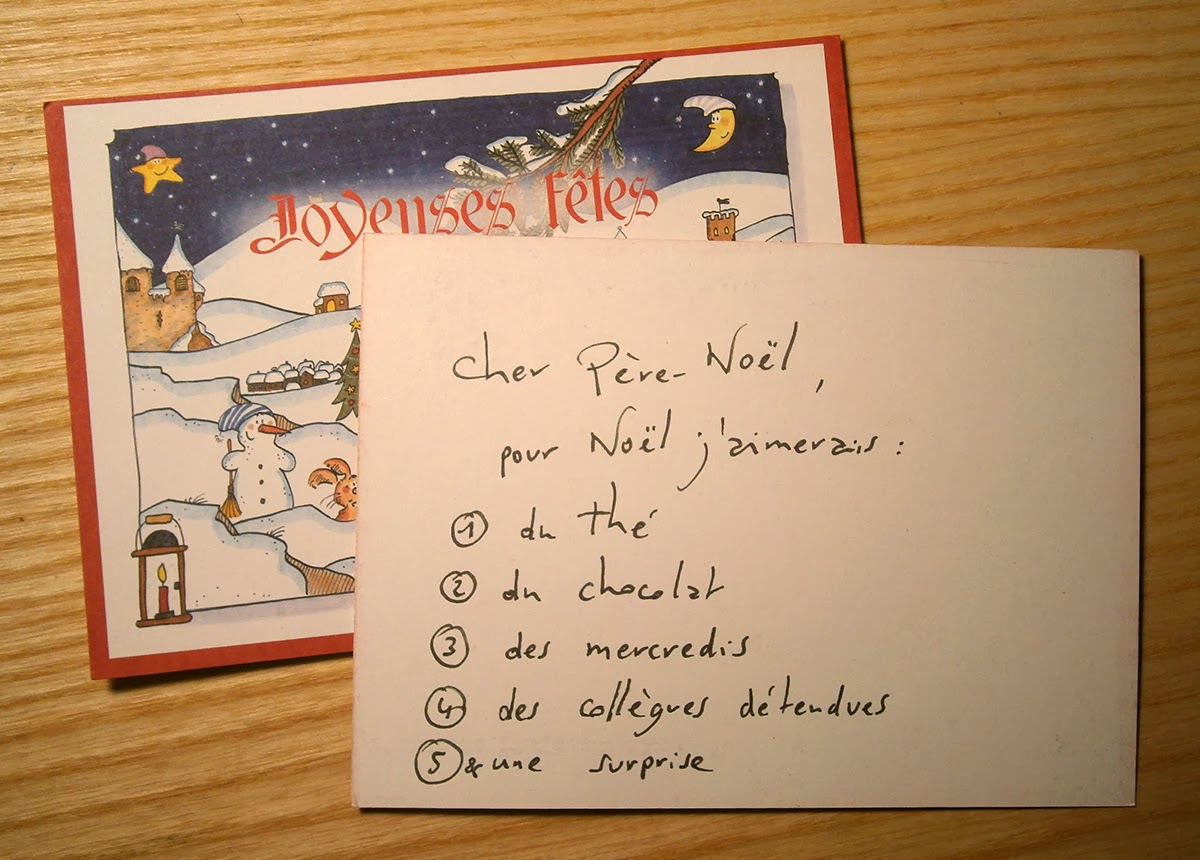 Joyeuses Fêtes
Cher Père-Noël,
pour Noël j'aimerais :
① du thé
② du chocolat
③ des mercredis
④ des collègues détendues
⑤ & une surprise